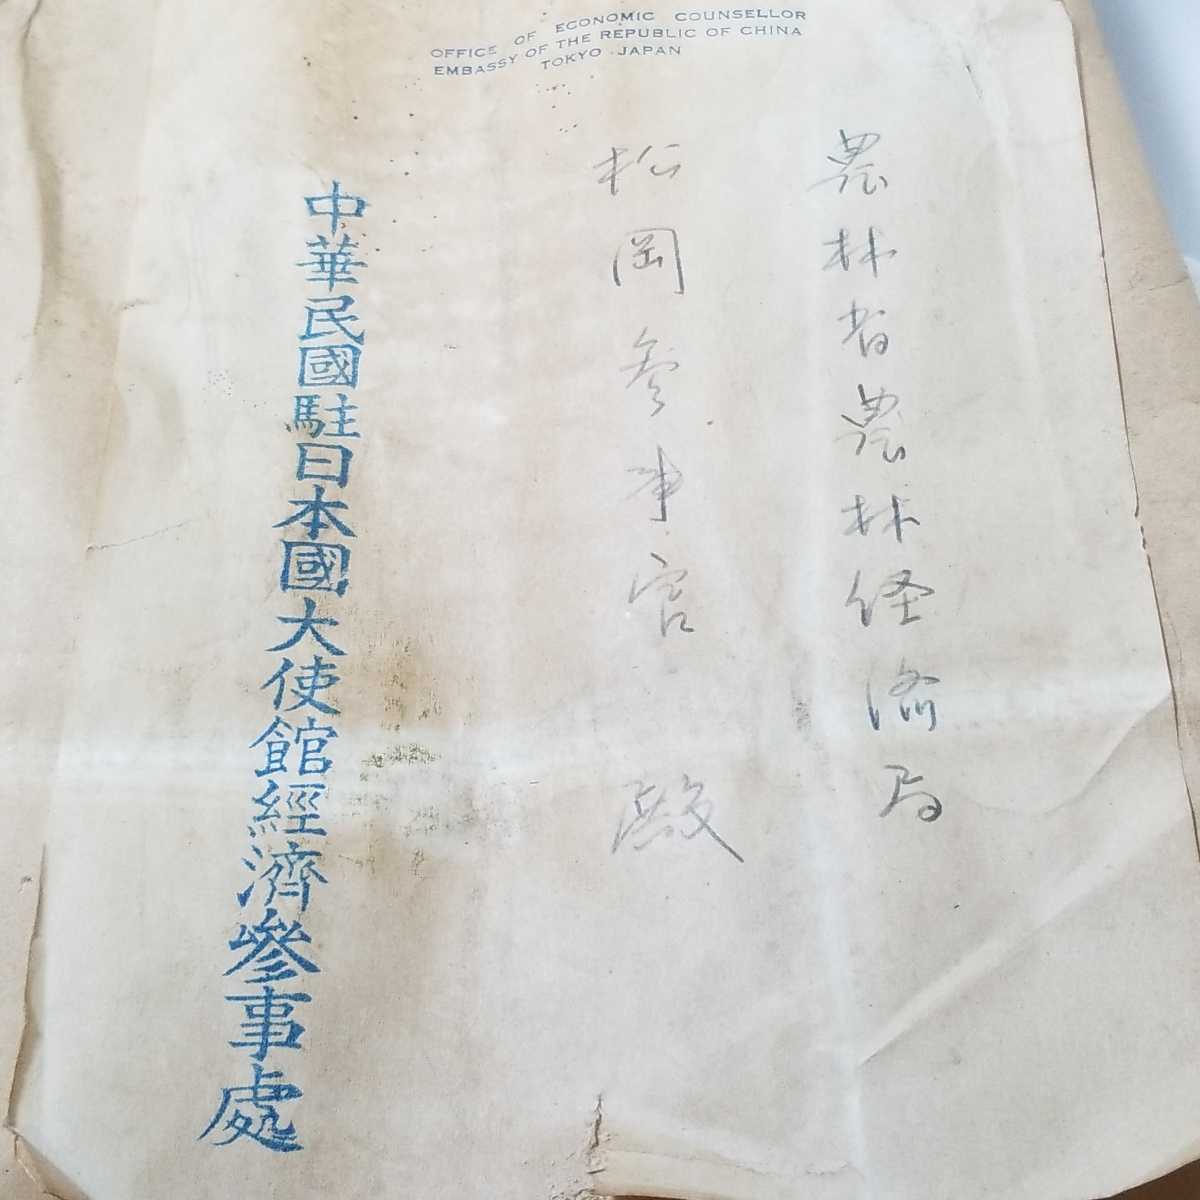 OFFICE OF ECONOMIC COUNSELLOR
EMBASSY OF THE REPUBLIC OF CHINA
TOKYO JAPAN
農林省農林経済局
松岡参事官 殿
中華民國駐日本國大使館經濟參事處